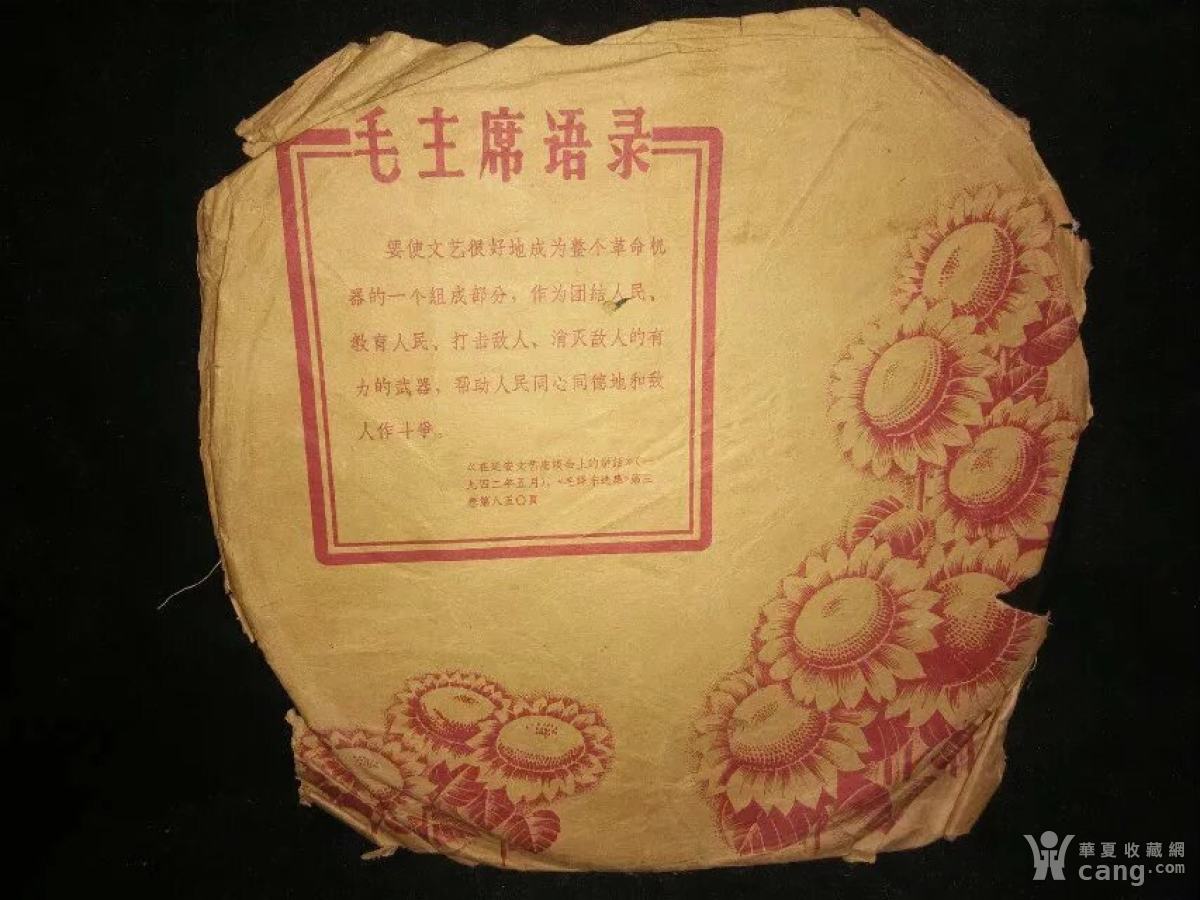 毛主席语录
要使文艺很好地成为整个革命机
器的一个组成部分，作为团结人民、
教育人民、打击敌人、消灭敌人的有
力的武器，帮助人民同心同德地和敌
人作斗爭。
《在延安文艺座谈会上的讲話》（一
九四二年五月），《毛泽东选集》第三
卷第八五〇頁
華夏收藏網
cang.com